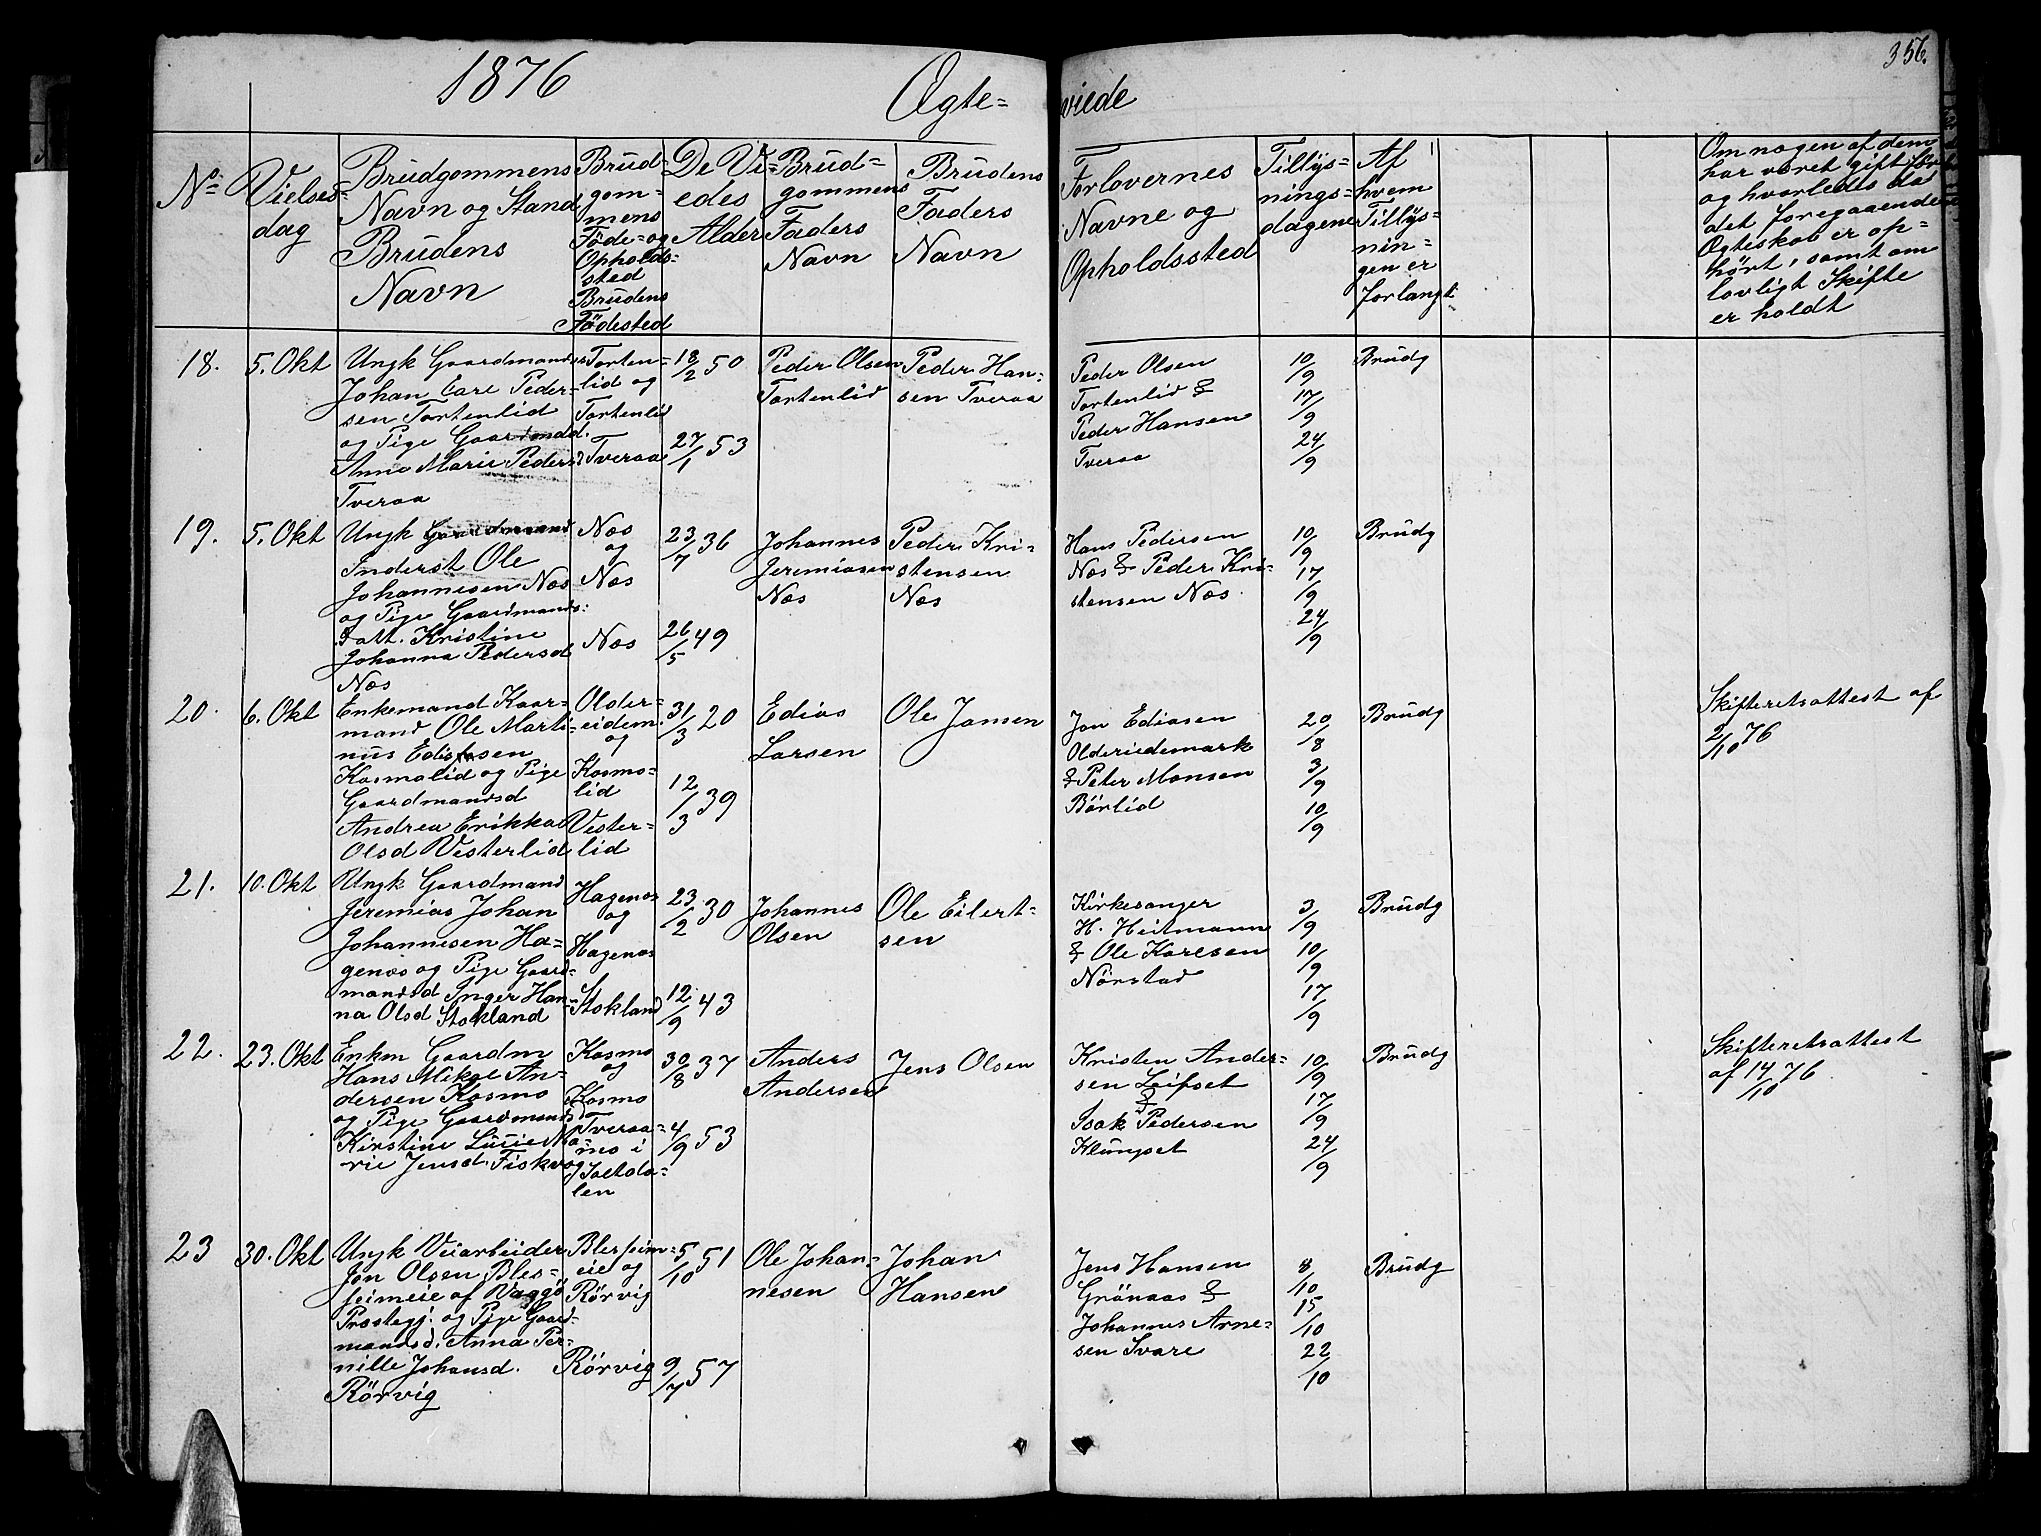 1876
Ægte=
viede
356.
No.
Vielses=
dag
Brudgommens
Navn og Stand
Brudens
Navn
Brud=
gom=
mens
Föde= og
Opholds=
sted
Brudens
Födested
De Vi=
edes
Alder
Brud=
gommens
Faders
Navn
Brudens
Faders
Navn
Forlovernes
Navne og
Opholdssted
Tillys=
nings=
dagene
Af
hvem
Tillys=
nin=
gen er
forlangt.
Om nogen af dem
har været gift før
og hvorledes da
det foregaaende
Ægteskab er op=
hört, samt om
lovligt Skifte
er holdt
18.
5. Okt
Ungk Gaardmands
Johan Carl Peder=
sen Tortenlid
og Pige Gaardmdd.
Anne Marie Pedersd
Tveraa
Torten=
lid og
Tortenlid
Tveraa
18/2 50
27/1 53
Peder Olsen
Tortenlid
Peder Han=
sen Tveraa
Peder Olsen
Tortenlid &
Peder Hansen
Tveraa
10/9
17/9
24/9
Brudg
19.
5. Okt
Ungk Gaardmand
Inderst Ole
Johannesen Næs
og Pige Gaardmands=
datt. Kristine
Johanna Pedersd
Næs
Næs
og
Næs
Næs
23/7 36
26/5 49
Johannes
Jeremiasen
Næs
Peder Kri=
stensen
Næs
Hans Pedersen
Næs & Peder Kri=
stensen Næs.
10/9
17/9
24/9
Brudg
20.
6. Okt
Enkemand Kaar=
mand Ole Marti=
nus Ediassen
Kosmolid og Pige
Gaardmandsd
Andrea Erikka
Olsd Vesterlid
Older=
eidem.
og
Kosmo=
lid
Vester=
lid
31/3 20
12/3 39
Edias
Larsen
Ole Jansen
Jon Ediasen
Oldereidemark
& Peter Monsen
Börlid
20/8
3/9
10/9
Brudg
Skifteretsattest af
2/10 76
21.
10. Okt
Ungk Gaardmand
Jeremias Johan
Johannesen Ha=
genæs og Pige Gaard=
mandsd Inger Han=
na Olsd Stokland
Hagenæs
og
Hagenæs
Stokland
23/2 30
12/9 43
Johannes
Olsen
Ole Eilert=
sen
Kirkesanger
H. Heitmann
& Ole Karlsen
Nörstad
3/9
10/9
17/9
Brudg
22.
23. Okt
Enkm Gaardm
Hans Mikal An=
dersen Kosmo
og Pige Gaardmandsd
Kirstine Lucie Ma=
rie Jensd. Fiskvag
Kosmo
og
Kosmo
Tveraa=
næs i
Saltda=
len
30/8 37
4/9 53
Anders
Andersen
Jens Olsen
Kristen Ander=
sen Leifset
&
Isak Pedersen
Klungset
10/9
17/9
24/9
Brudg
Skifteretsattest
af 14/10 76.
23
30. Okt
Ungk Veiarbeider
Jon Olsen Bles=
seimeie af Vaagö
Præstegj. og Pige Gaard=
mandsd. Anna Per=
nille Johansd.
Rörvig
Blesseim=
eie og
Rörvig
Rörvig
5/10 51
9/7 57
Ole Johan=
nesen
Johan
Hansen
Jens Hansen
Grönaas &
Johannes Arne=
sen Svare
8/10
15/10
22/10
Brudg